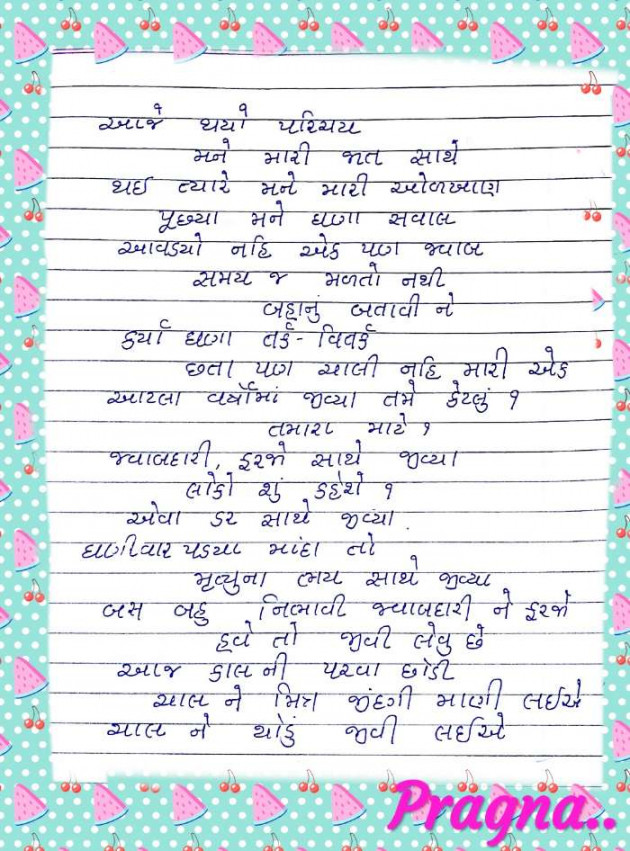 આજે થયો પરિચય
મને મારી જાત સાથે
થઇ ત્યારે મને મારી ઓળખાણ
પૂછયા મને ઘણા સવાલ
આવડયો નહિ એક પણ જવાબ
સમય જ મળતો નથી
બહાનું બતાવી ને
કર્યા ઘણા તર્ક-વિતર્ક
છતા પણ ચાલી નહિ મારી એક
આટલા વર્ષોમાં જીવ્યા તમે કેટલું ?
તમારા માટે ?
જવાબદારી, ફરજો સાથે જીવ્યા
લોકો શું કહેશે ?
એવા ડર સાથે જીવ્યા.
ઘણીવાર પડયા માંદા તો
મૃત્યુના ભય સાથે જીવ્યા
બસ બહુ નિભાવી જવાબદારી ને ફરજો
હવે તો જીવી લેવુ છે
આજ કાલ ની પરવા છોડી
ચાલ ને મિત્ર જીંદગી માણી લઇએ
ચાલ ને થોડું જીવી લઇએ
Pragna..